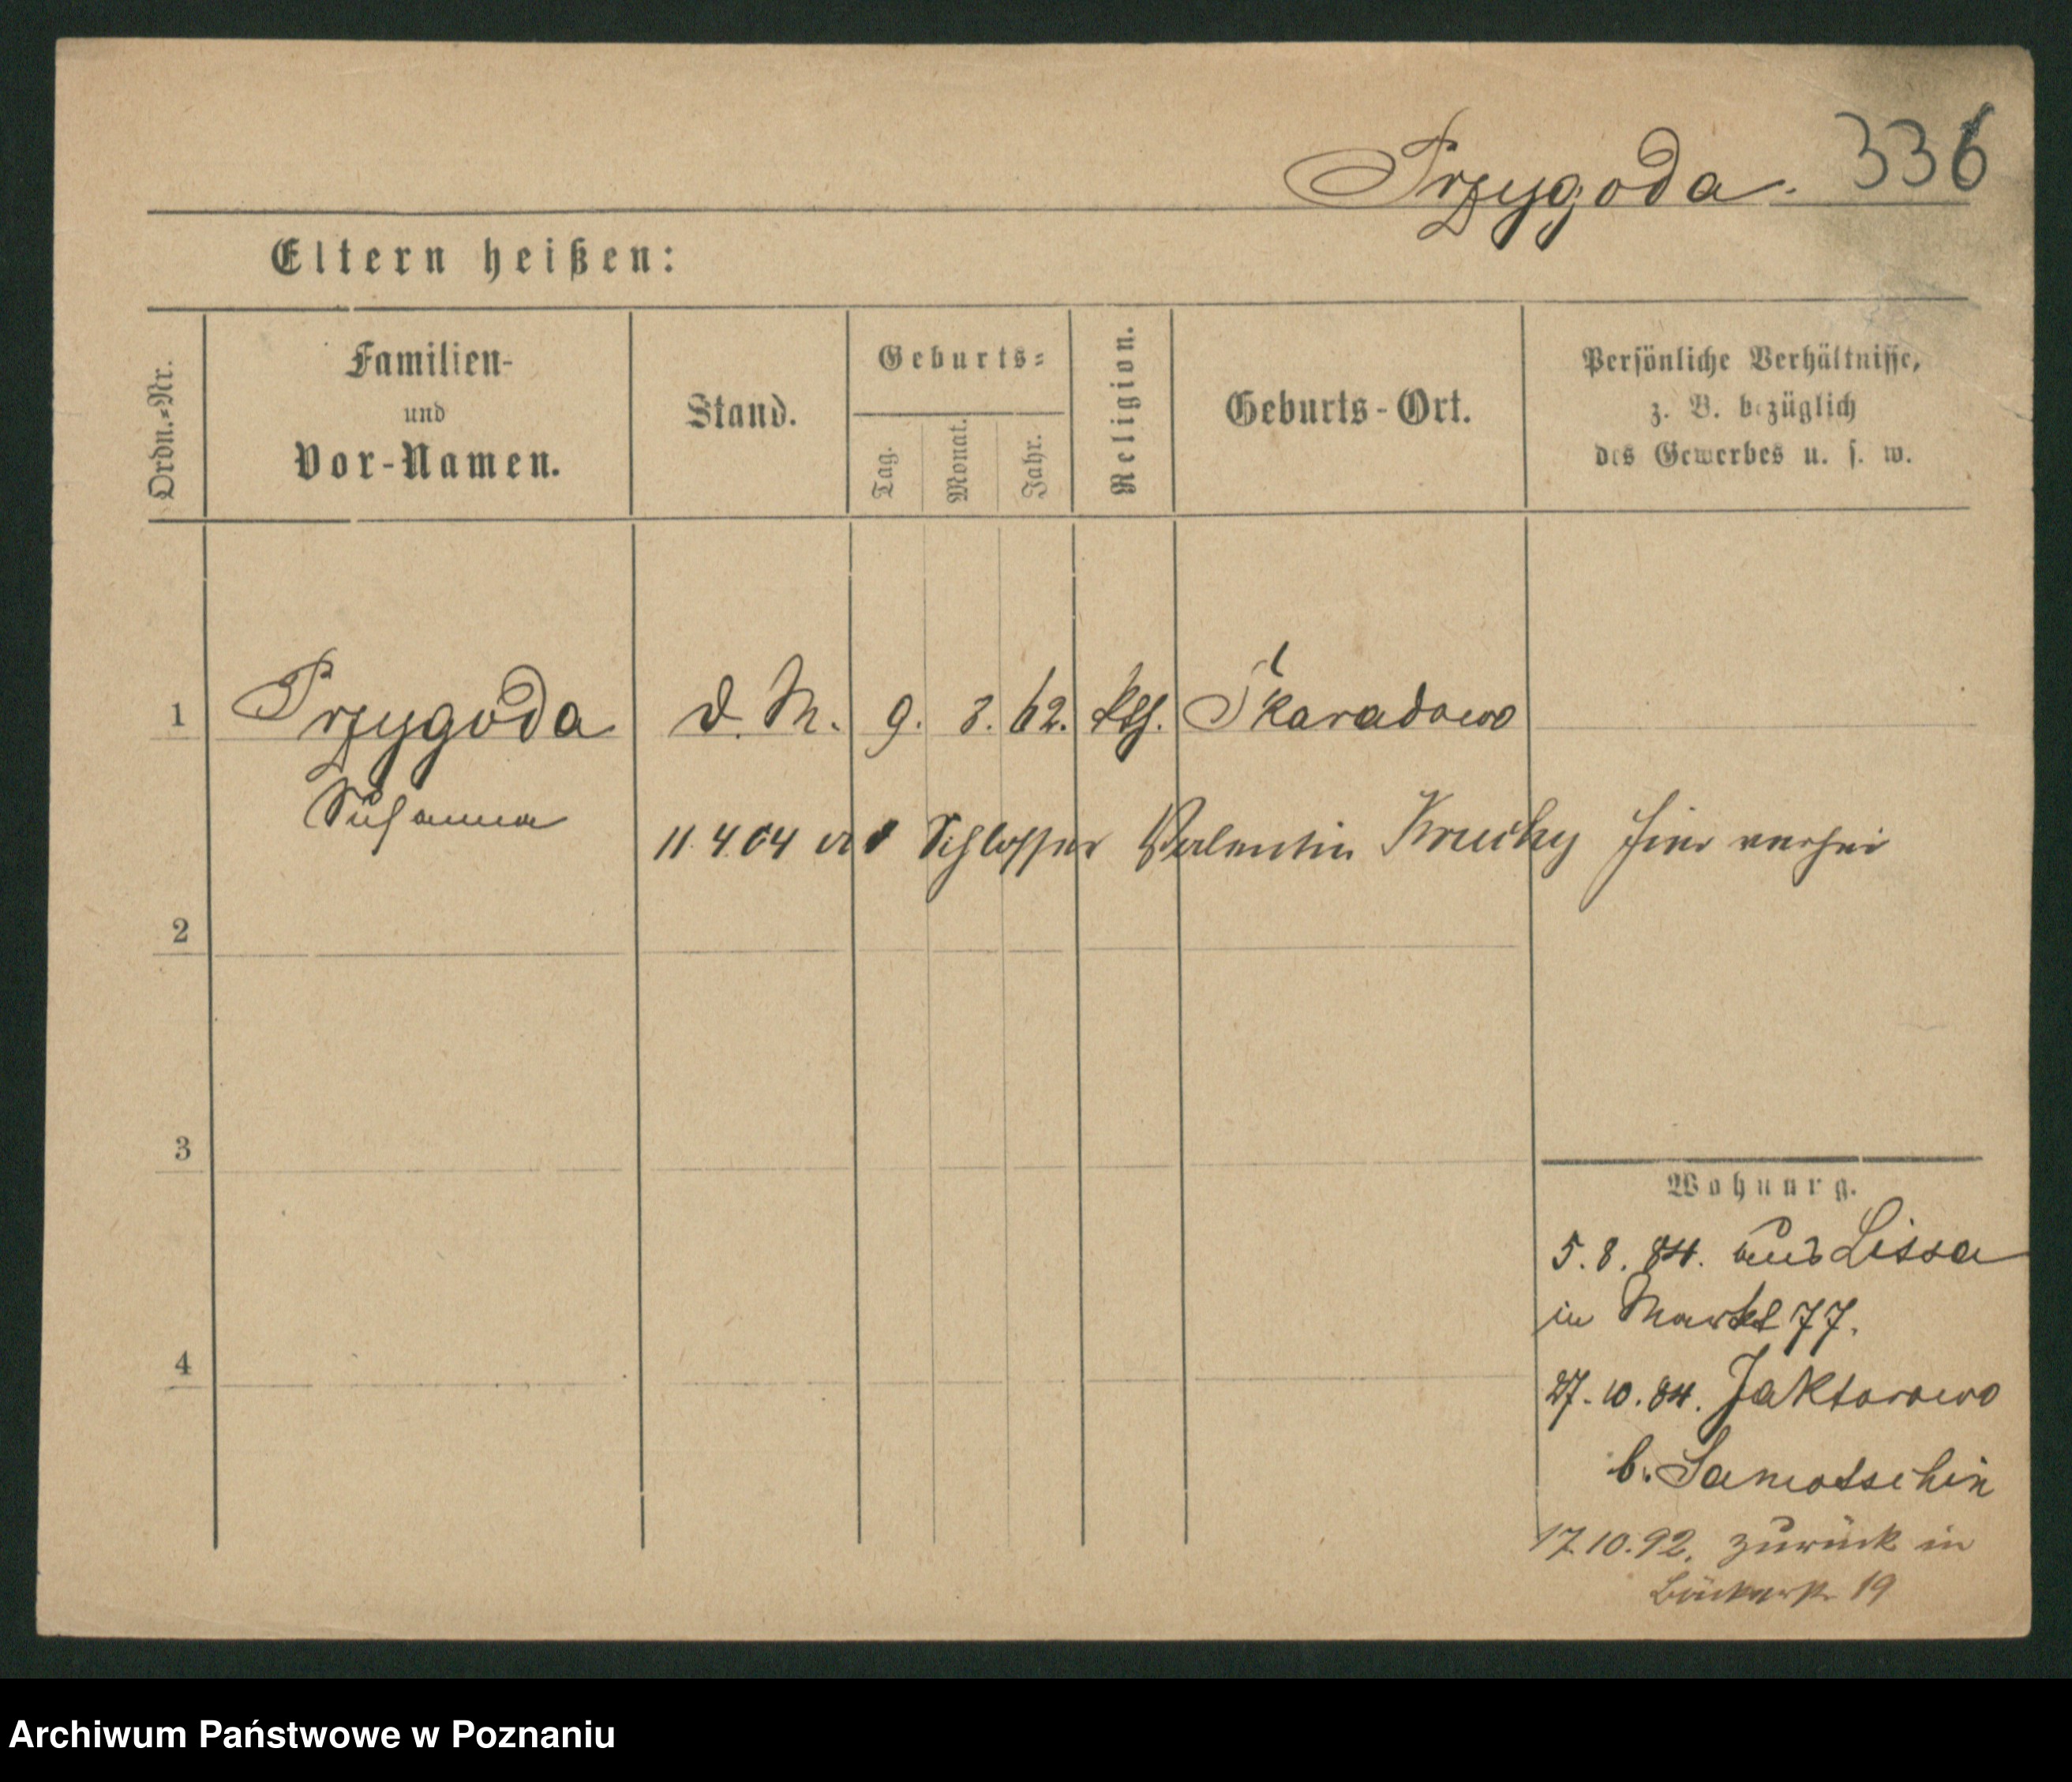 Przygoda. 336
Eltern heißen:
Ordn.-Nr.
Familien-
und
Vor-Namen.
Stand.
Geburts-
Tag.
Monat.
Jahr.
Religion.
Geburts-Ort.
Persönliche Verhältnisse,
z. B. bezüglich
des Gewerbes u. s. w.
1 Przygoda d. M. 9. 8. 62. kth. Skaradowo
Susanna
11 4 04 Schlosser Valentin hier
2
3
4
Wohnung.
5. 8. 84. aus Lissa
in Markt 77.
27. 10. 84. Jaktorowo
b. Samotschin
17.10.92. zurück in
Bäckerstr 19
Archiwum Państwowe w Poznaniu